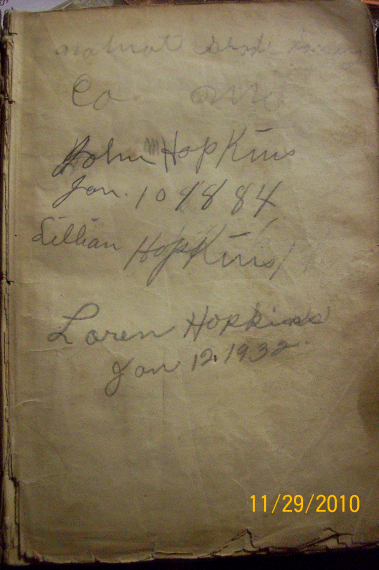 Co.
John M Hopkins
Jan. 10 1884
Lillian Hopkins
Loren Hopkins
Jan 12. 1932.
11/29/2010